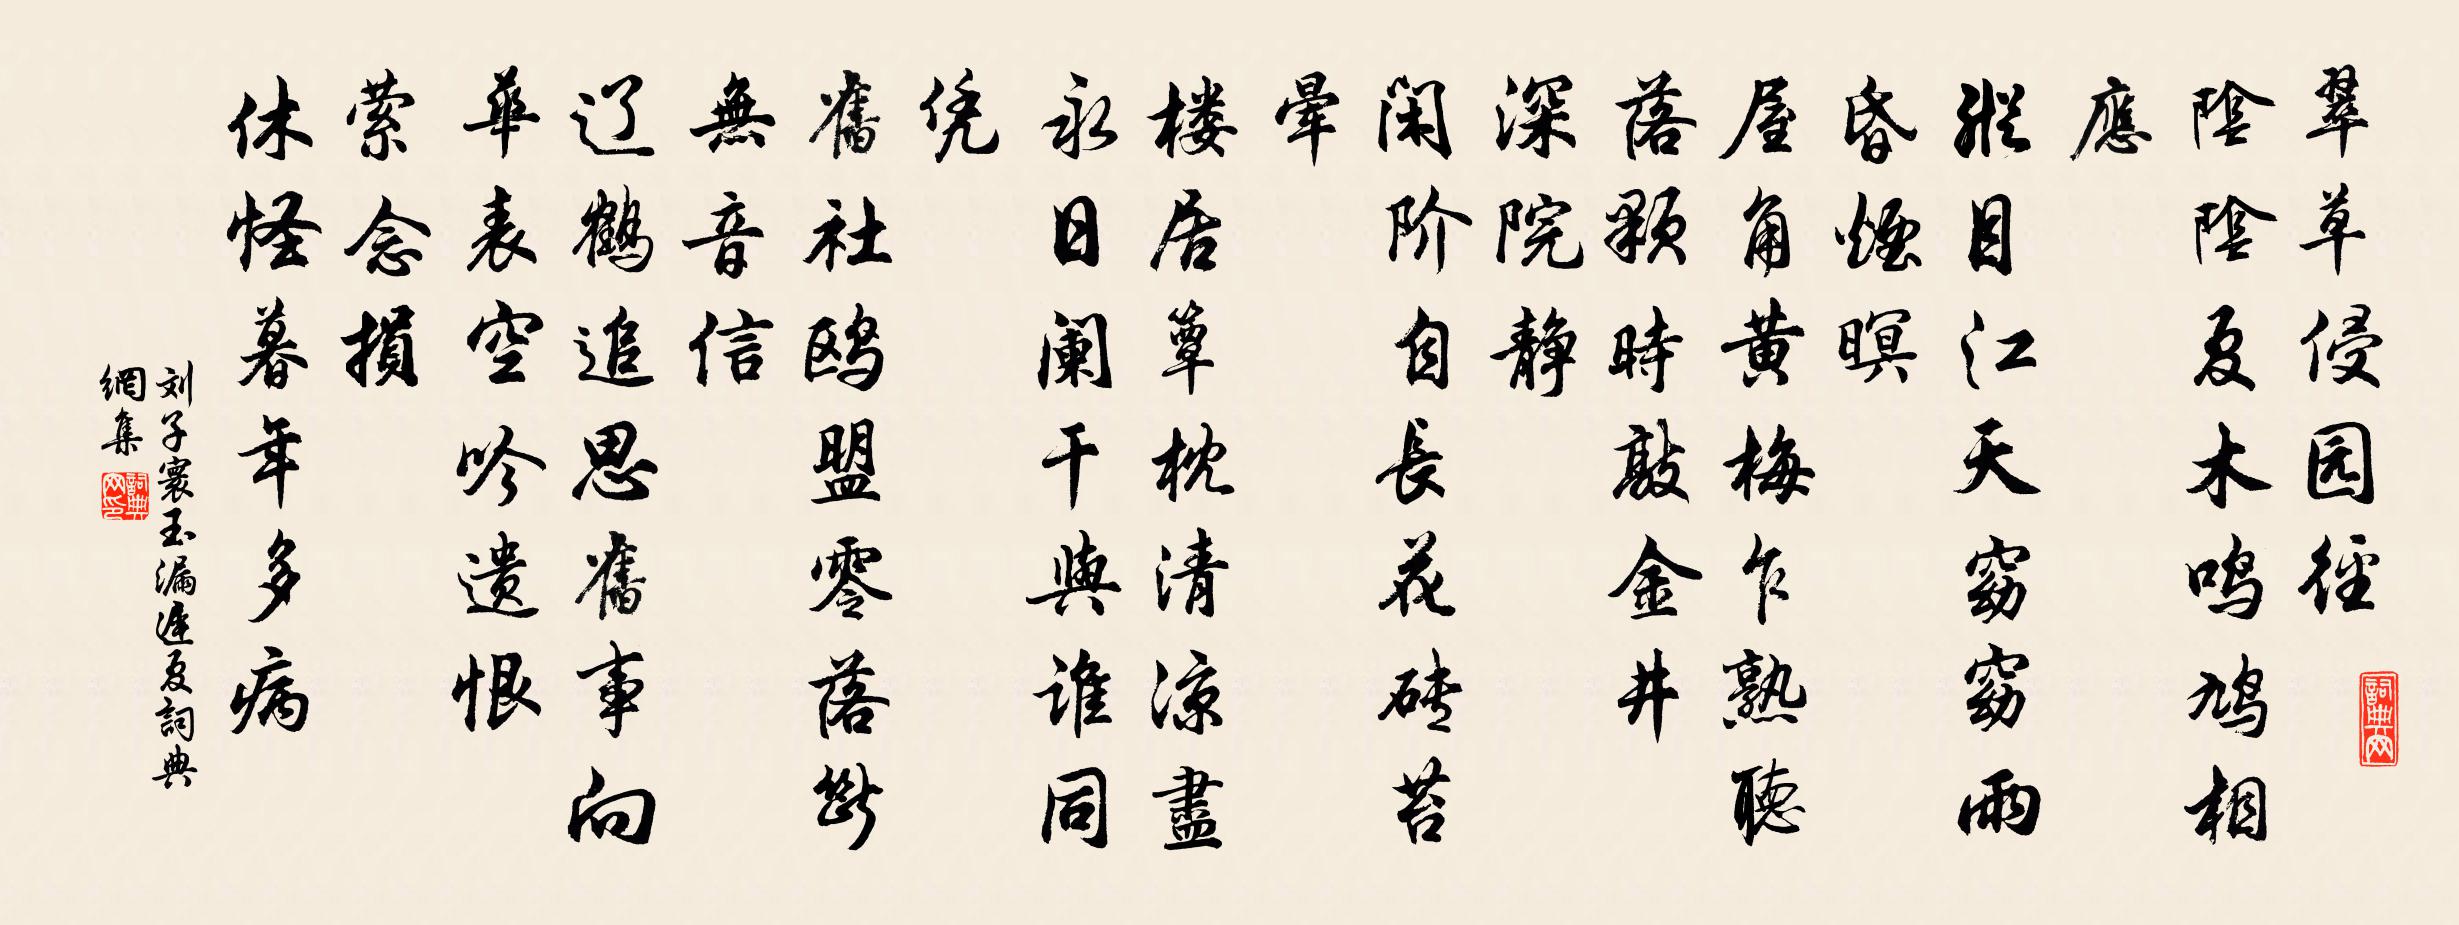 翠草侵园徑
陰陰夏木鸣鸠相
應
縱目江天窈窈雨
昏煙暝
屋角黄梅乍熟聽
落顆時敲金井
深院静
闲阶自長花砖苔
暈
楼居簟枕清凉盡
永日阑干與谁同
凭
舊社鸥盟零落斷
無音信
辽鹤追思舊事向
華表空吟遗恨
萦念損
休怪暮年多病
刘子寰玉漏遲夏詞典
網集
詞典网
詞典网印